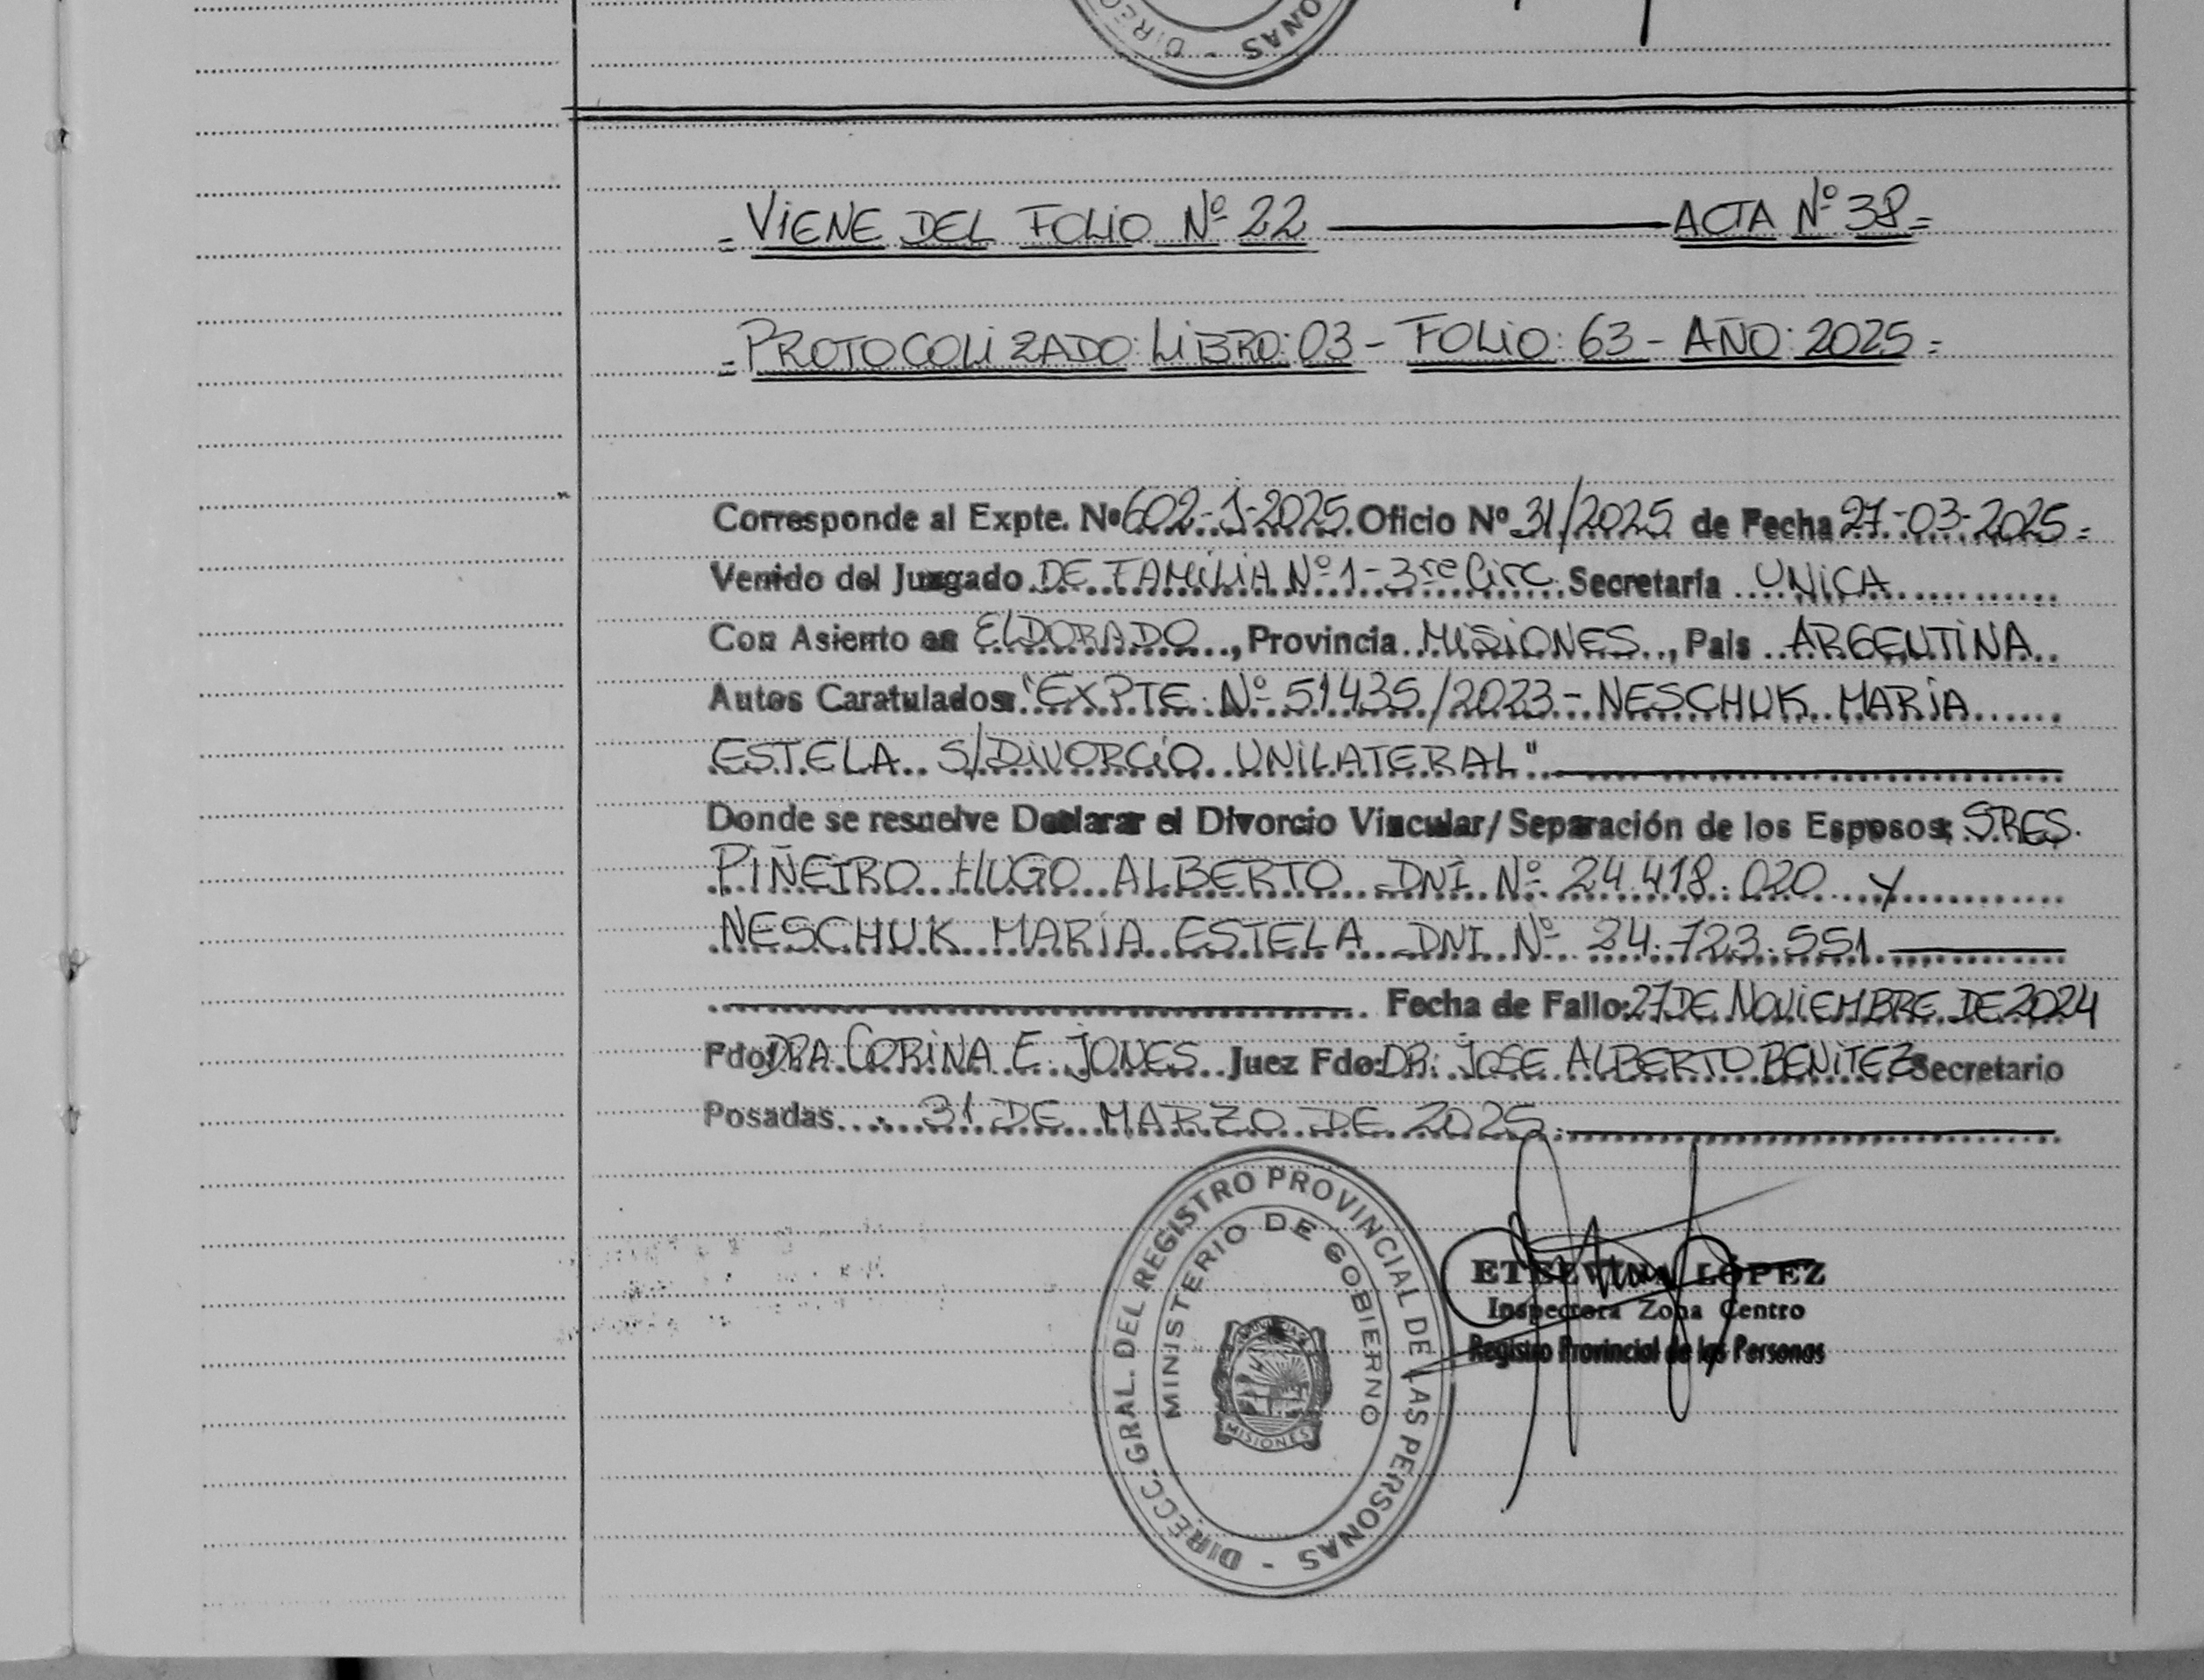 DIRECC - ONAS
= VIENE DEL FOLIO Nº 22 ——— ACTA Nº 38 =
= PROTOCOLIZADO: LIBRO: 03 - FOLIO: 63 - AÑO: 2025 =
Corresponde al Expte. Nº 602-J-2025. Oficio Nº 31/2025 de Fecha 27-03-2025 =
Venido del Juzgado DE FAMILIA Nº 1 - 3ra Circ. Secretaría UNICA
Con Asiento en ELDORADO, Provincia MISIONES, País ARGENTINA
Autos Caratulados: "EXPTE Nº 51435/2023 - NESCHUK MARÍA
ESTELA S/DIVORCIO UNILATERAL"
Donde se resuelve Declarar el Divorcio Vincular/Separación de los Esposos: SRES.
PIÑEIRO HUGO ALBERTO DNI Nº 24.418.020 y
NESCHUK MARÍA ESTELA DNI Nº 24.723.551
Fecha de Fallo: 27 DE NOVIEMBRE DE 2024
Fdo: DRA. CORINA E. JONES Juez Fdo: DR. JOSE ALBERTO BENITEZ Secretario
Posadas 31 DE MARZO DE 2025.
DIRECC. GRAL. DEL REGISTRO PROVINCIAL DE LAS PERSONAS -
MINISTERIO DE GOBIERNO
MISIONES
ETELVINA LÓPEZ
Inspectora Zona Centro
Registro Provincial de las Personas